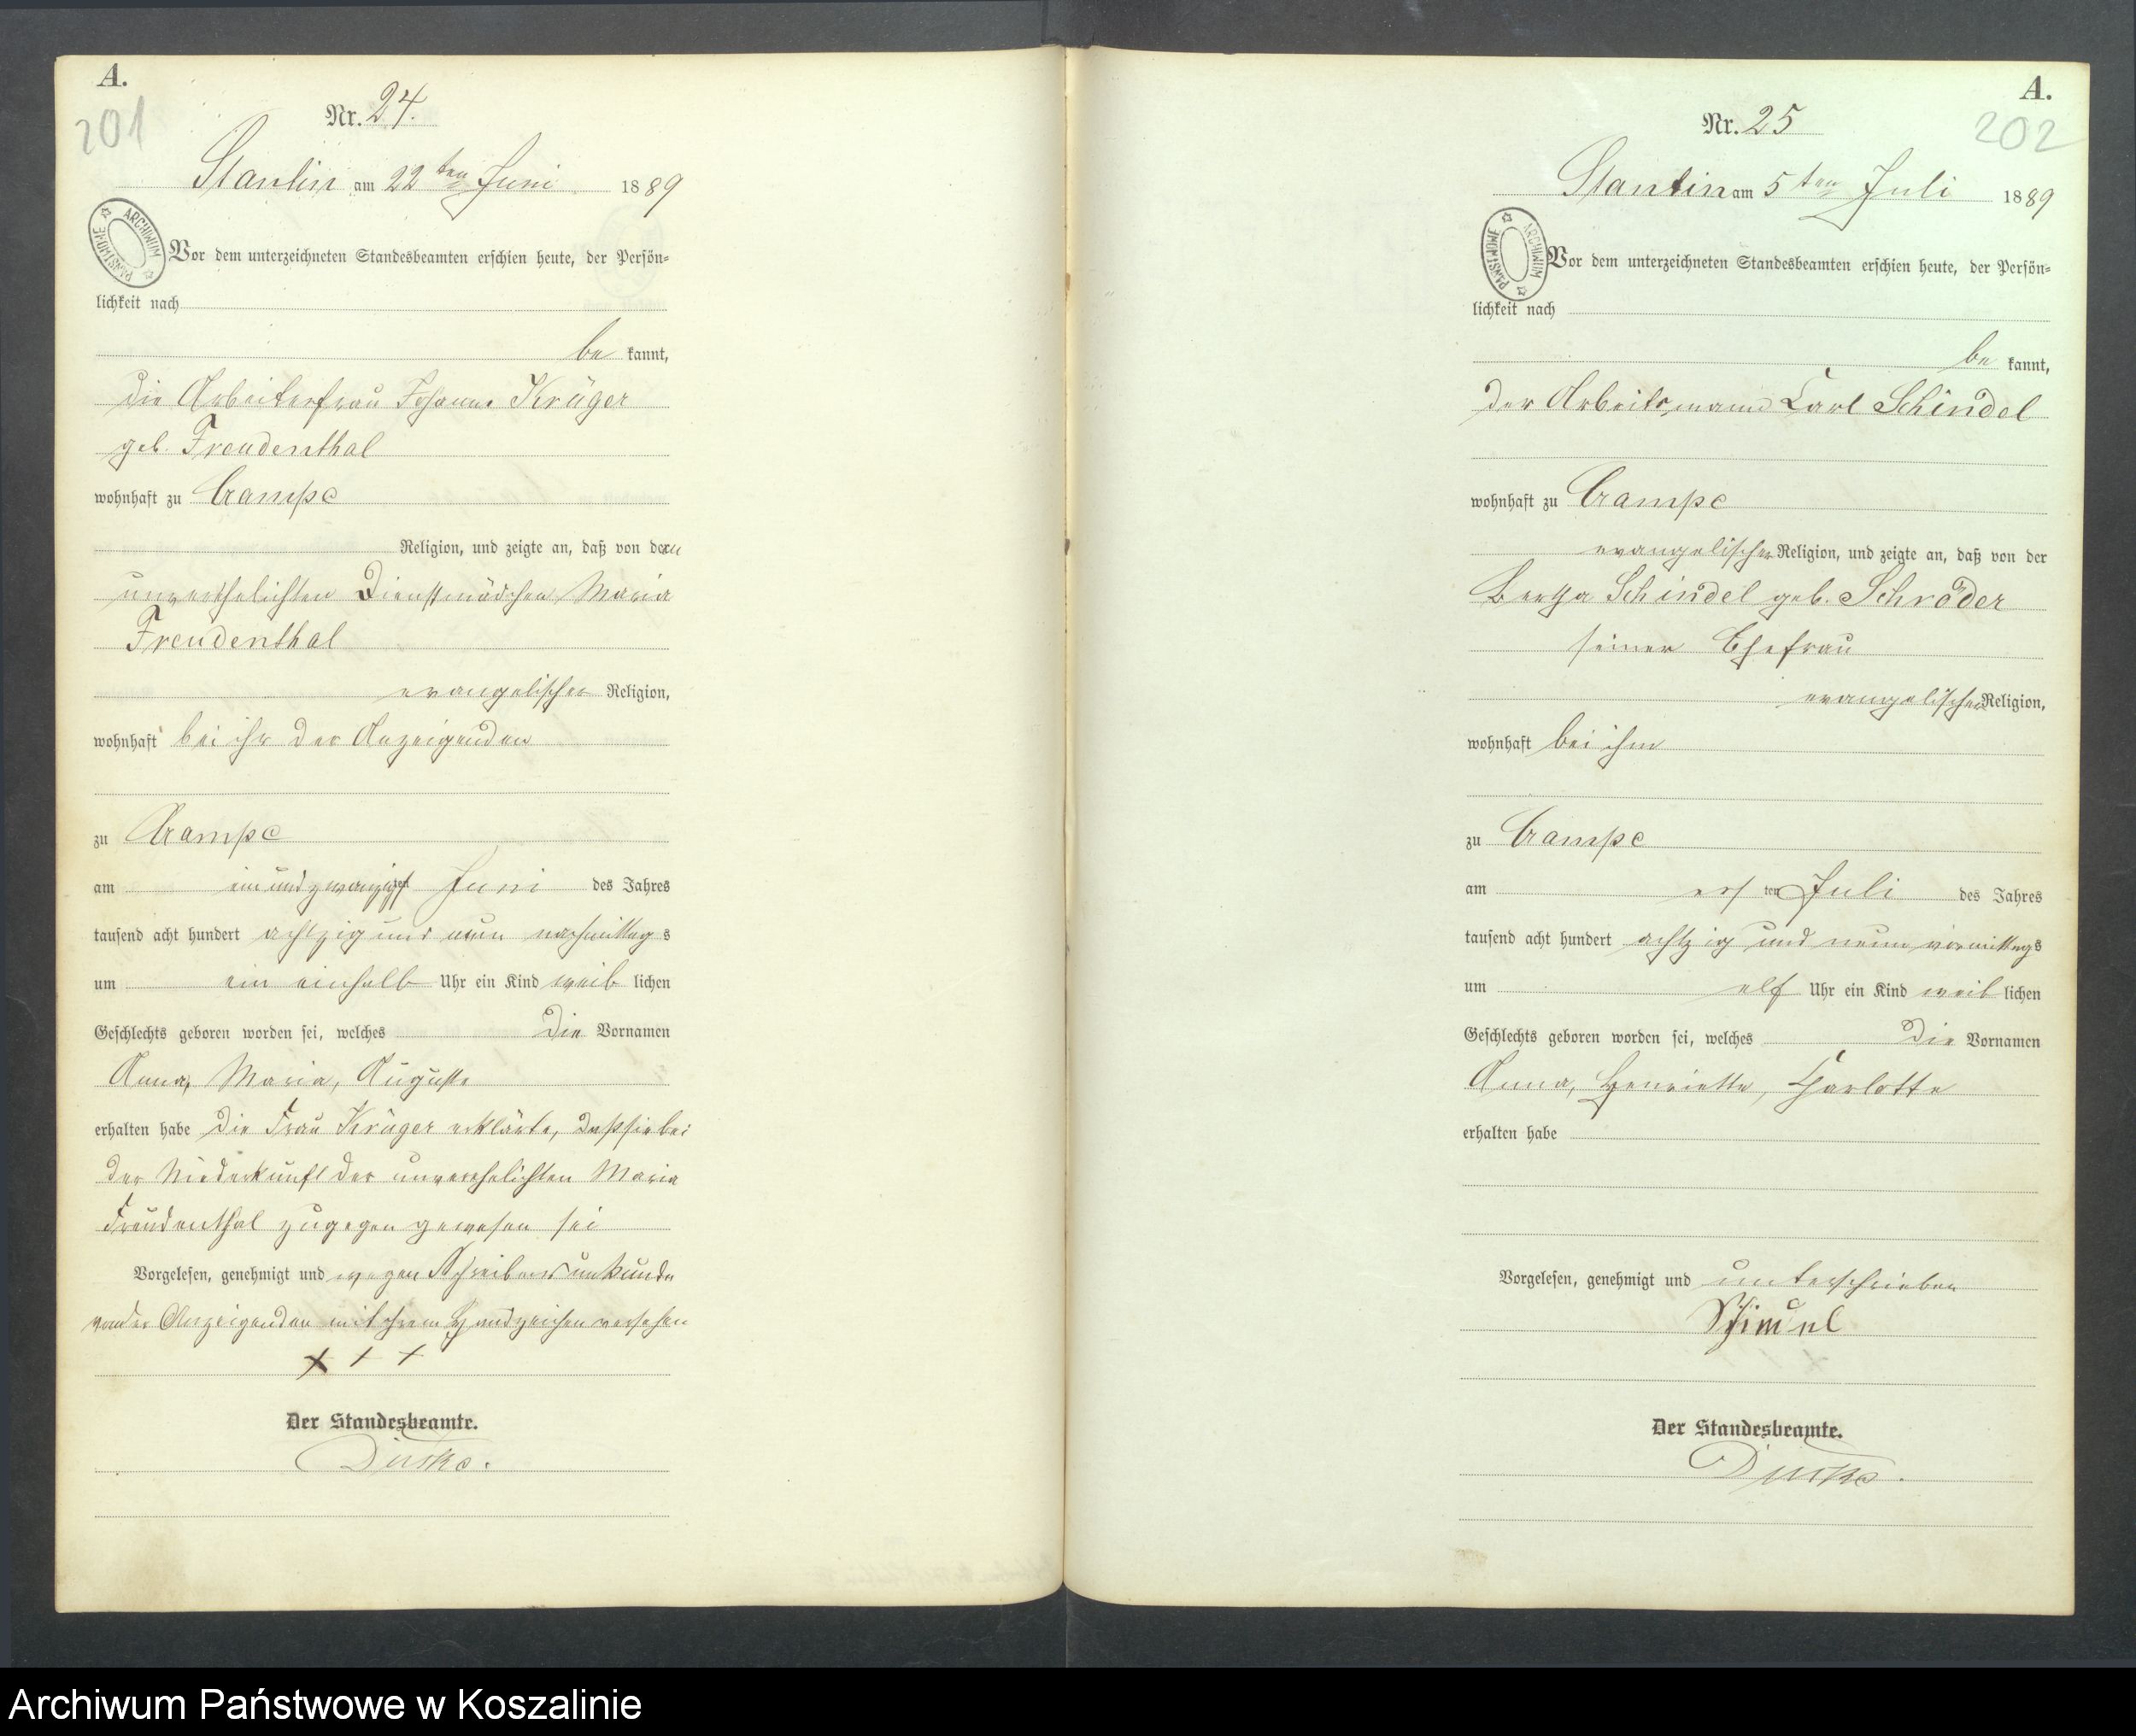 A.
201
Nr. 24.
Stantin am 22ten Juni 1889
ARCHIWUM PAŃSTWOWE
Vor dem unterzeichneten Standesbeamten erschien heute, der Persön=
lichkeit nach
be kannt,
die Arbeiterfrau Johanne Krüger
geb. Freudenthal
wohnhaft zu Crampe
Religion, und zeigte an, daß von der
unverehelichten Dienstmädchen Maria
Freudenthal
evangelischer Religion,
wohnhaft bei ihr der Anzeigenden
zu Crampe
am ein und zwanzigsten Juni des Jahres
tausend acht hundert achtzig und neun nachmittags
um ein einhalb Uhr ein Kind weib lichen
Geschlechts geboren worden sei, welches die Vornamen
Anna, Maria, Auguste
erhalten habe die Frau Krüger erklärte, daß sie bei
der Niederkunft der unverehelichten Maria
Freudenthal zugegen gewesen sei
Vorgelesen, genehmigt und wegen Schreibensunkunde
von der Anzeigenden mit ihrem Handzeichen versehen
+ + +
Der Standesbeamte.
A.
202
Nr. 25
Stantin am 5ten Juli 1889
ARCHIWUM PAŃSTWOWE
Vor dem unterzeichneten Standesbeamten erschien heute, der Persön=
lichkeit nach
be kannt,
der Arbeitsmann Carl Schindel
wohnhaft zu Crampe
evangelischer Religion, und zeigte an, daß von der
Bertha Schindel geb. Schröder
seiner Ehefrau
evangelischer Religion,
wohnhaft bei ihm
zu Crampe
am ersten Juli des Jahres
tausend acht hundert achtzig und neun vormittags
um elf Uhr ein Kind weib lichen
Geschlechts geboren worden sei, welches die Vornamen
Anna, Henriette, Charlotte
erhalten habe
Vorgelesen, genehmigt und unterschrieben
Schindel
Der Standesbeamte.
Archiwum Państwowe w Koszalinie